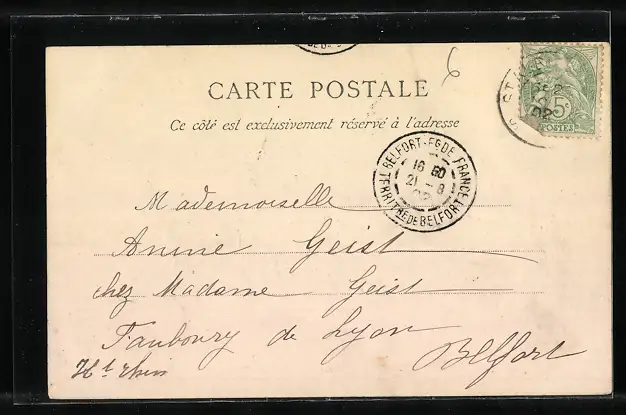 6
CARTE POSTALE
Ce côté est exclusivement réservé à l'adresse
5c
POSTES
BELFORT-FG DE FRANCE
16 50
21 - 8
02
TERRIT RE DE BELFORT
Mademoiselle
Annie Geist
chez Madame Geist
Faubourg de Lyon
Belfort
Ht Rhin